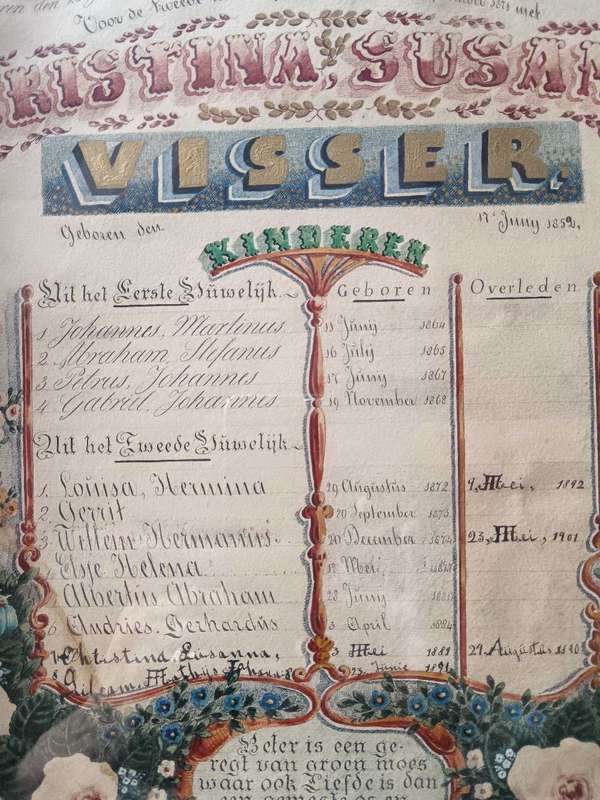 Voor de tweede
RISTINA, SUSAN
VISSER.
Geboren den 17 Juny 1852.
KINDEREN
Uit het Eerste Huwelijk. Geboren Overleden
1 Johannes, Martinus 11 Junij 1864
2. Abraham, Stefanus 16 Julij 1865
3 Petrus, Johannes 17 Juny 1867
4. Gabriel, Johannes 19 November 1868
Uit het Tweede Huwelijk.
1. Louisa, Hermina 29 Augustus 1872 4, Mei, 1892
2. Gerrit 20 September 1873
3 Willem Hermanus. 20 December 23, Mei, 1901
Elsie Helena. Mei,
Albertus Abraham Juny
6 Andries. Gerhardus 3 April 1884
7. Christina, Susanna, 3 Mei 1889 29. Augustus 1890
8 Mathys 23. Junie 1891
Beter is een ge-
regt van groen moes
waar ook Liefde is dan
een gemeste os en